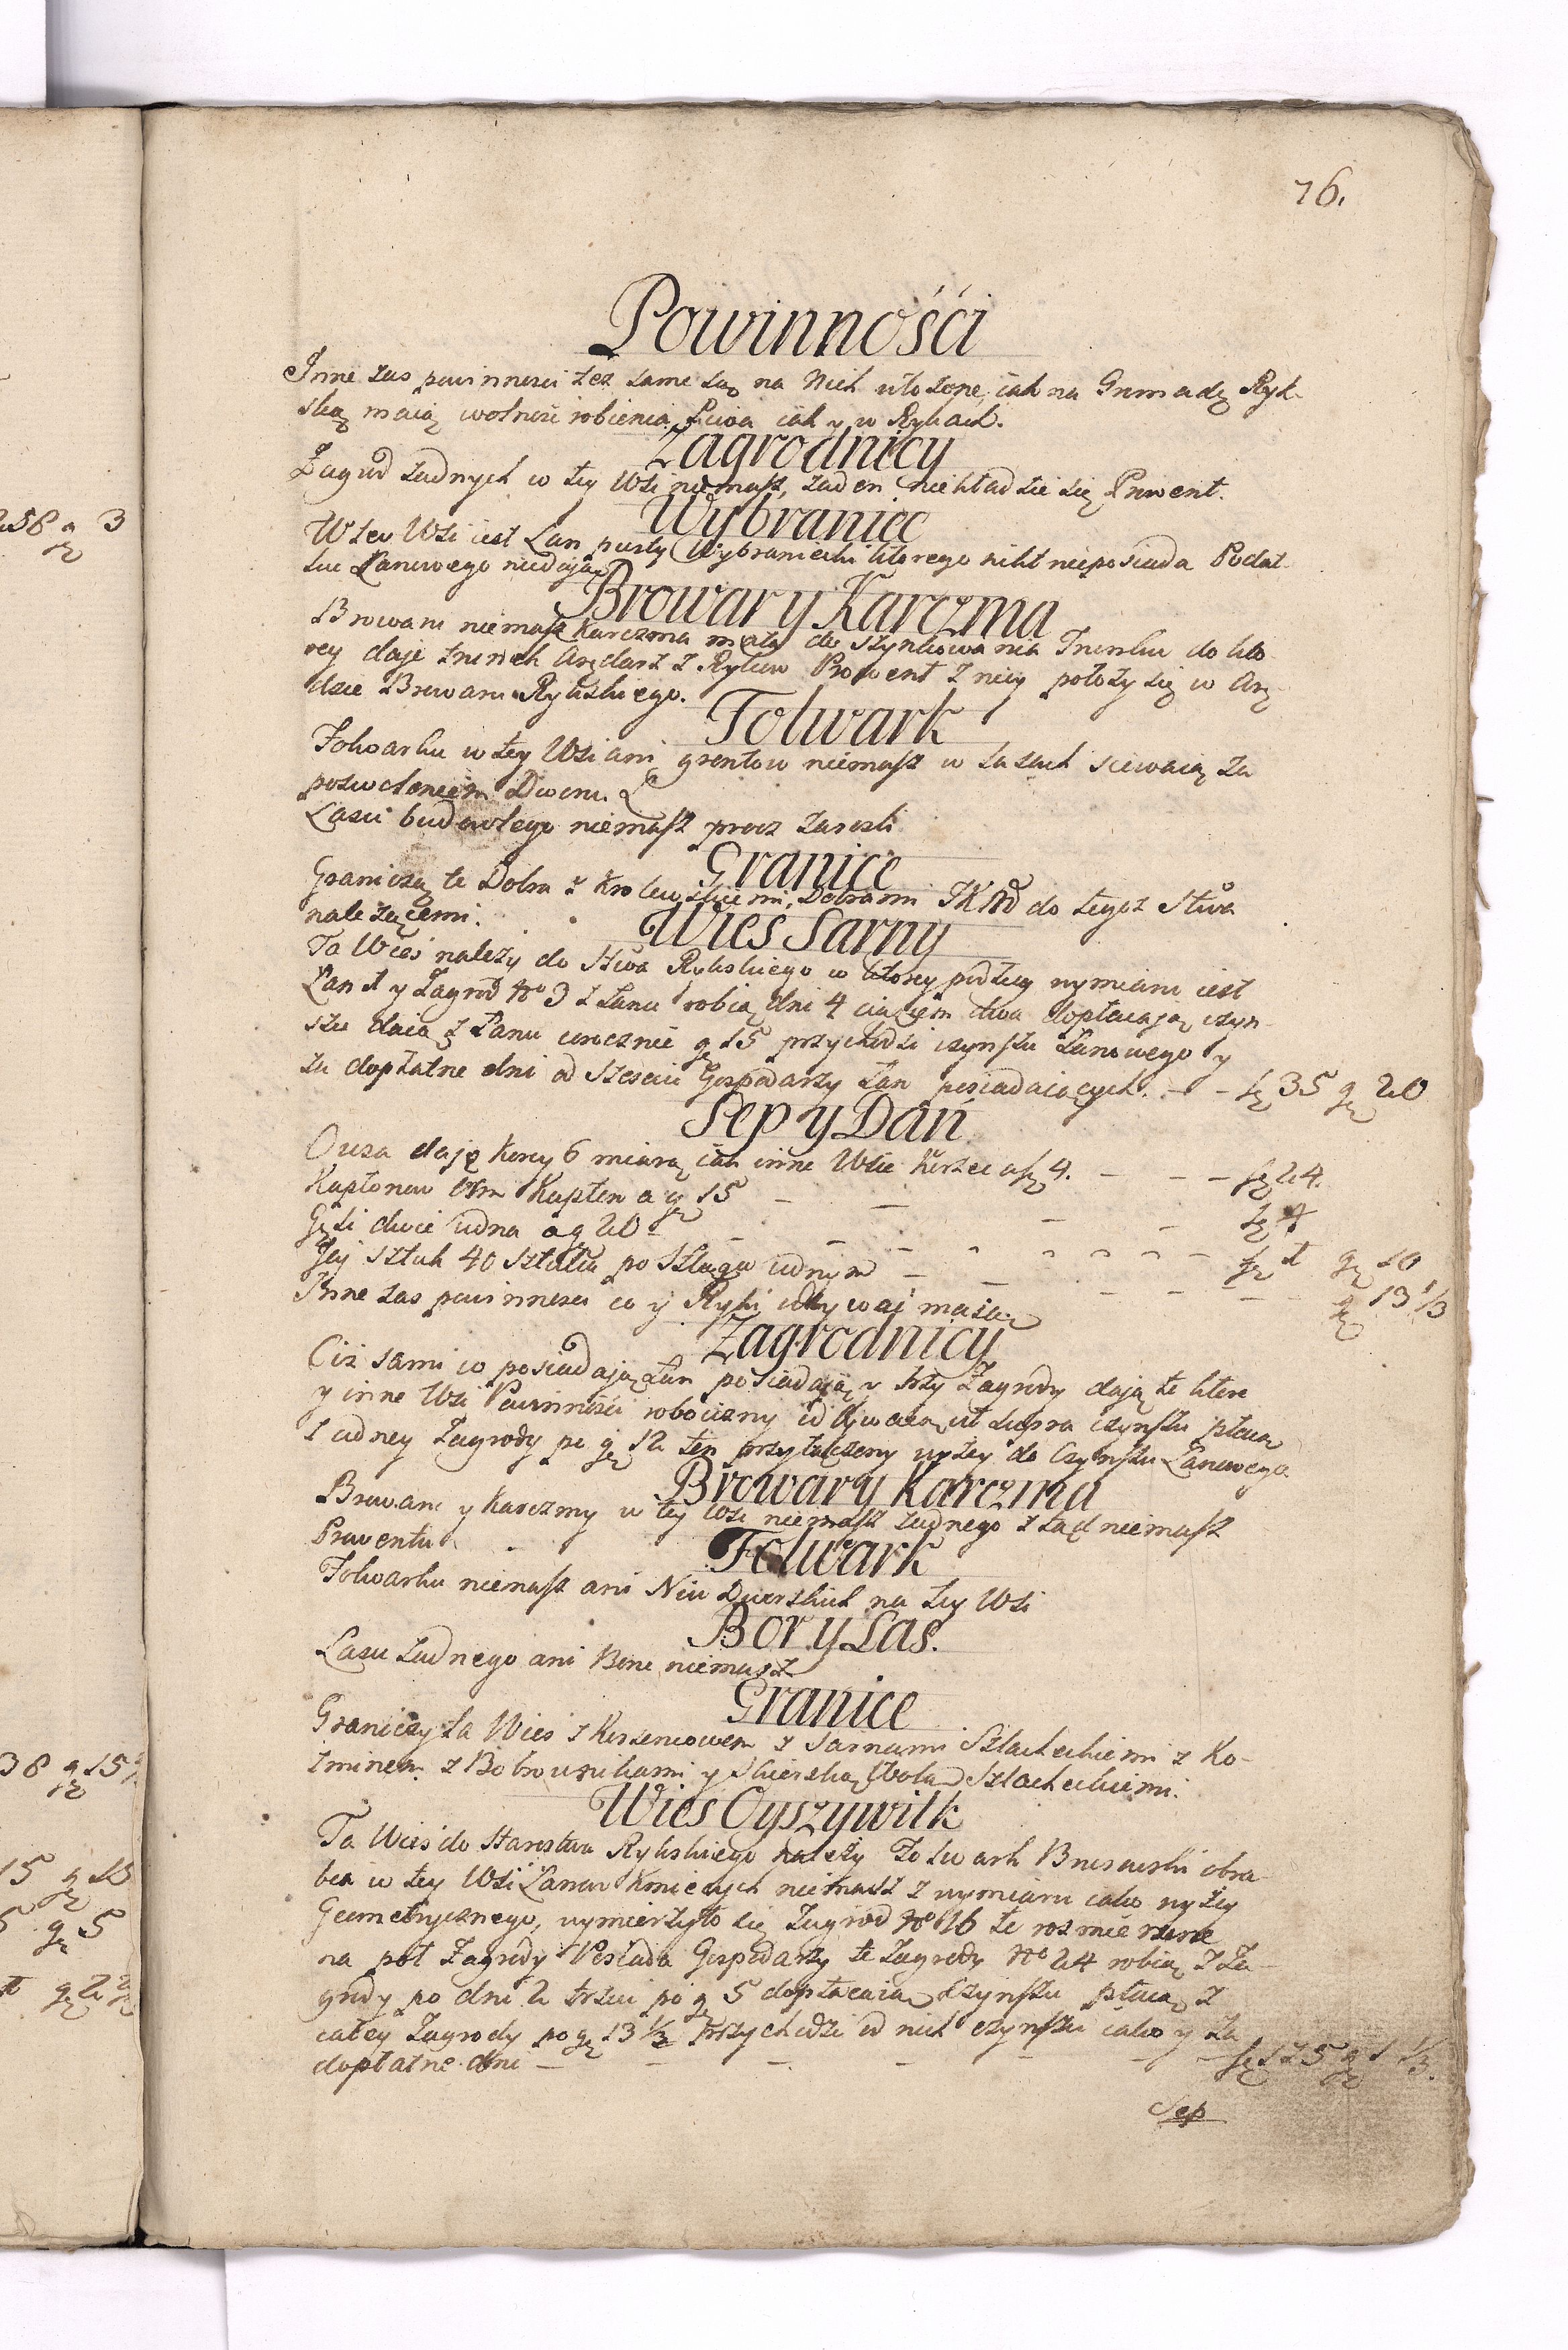 76.
Powinnośći
Inne zas powinnosci tez same są na Nich włozone, iak na Gromadę Ryk-
ską maią wolność robienia Piwa iak y w Rykach.
Zagrodnicy
Zagrod zadnych w tey Wsi niemasz, zaden niekładzie się Prowent.
Wybraniec
W tey Wsi iest Łan pusty Wybraniecki ktorego nikt nieposiada Podat
ku Łanowego niedają
Browar y Karczma
Browaru niemasz Karczma mała do szynkowania Trunku do kto
rey daje trunek Arędarz z Rykow Prowent z niey połozy się w Arę
dzie Browaru Rykskiego.
Folwark
Folwarku w tey Wsi ani grontow niemasz w Lasach siewaią za
pozwoleniem Dworu.
Lasu budowlego niemasz procz zarosli
Granice
Graniczą te Dobra z Krolewskiemi, Dobrami JKM do tegoz Stwa
należącemi.
Wieś Sarny
Ta Wieś nalezy do Stwa Rykskiego w ktorey podług wymiaru iest
Łan 1 y Zagrod No 3 z Łanu robią dni 4 ciągiem dwa dopłacają czyn
szu daią z Łanu corocznie gr 15 przychodzi czynszu Łanowego y
za dopłatne dni od szesciu Gospodarzy Łan posiadaiących. - - fl 35 gr 20
Sep y Dań
Owsa dają Korcy 6 miarą iak inne Wsie Korzec a fl 4. - - - fl 24.
Kapłonow Osm Kapłon a gr 15 - - - - fl 4
Gęsi dwie iedna a gr 20 - - - - fl 1 gr 10
Jay sztuk 40 sztuka po szelągu iednym - - - - gr 13 1/3
Inne zas powinnosci co y Ryki odbywać maią
Zagrodnicy
Ciż sami co posiadają Łan posiadają y trzy Zagrody dają te ktore
y inne Wsi Powinności robocizny odbywaią ut supra czynszu płacą
z iedney Zagrody po gr 12 ten przyłączony wyżey do Czynszu Łanowego
Browar y Karczma
Browaru y Karczmy w tey Wsi niemasz zadnego z tąd niemasz
Prowentu
Folwark
Folwarku niemasz ani Niw Dworskich na tey Wsi
Bor y Las.
Lasu zadnego ani Boru niemasz
Granice
Graniczy ta Wieś z Korzeniowem z Sarnami Szlacheckiemi z Ko-
zminem z Bobrownikami y Skierską Wolą Szlacheckiemi.
Wies Oyszywilk
Ta Wieś do Starostwa Rykskiego należy Folwark Brusowski obra
bia w tey Wsi Łanow Kmiecych niemasz z wymiaru iako wyżey
Geometrycznego, wymierzyło się Zagrod No 16 te rozmierzone
na puł Zagrody Posiada Gospodarzy te Zagrody No 24 robią z Za-
grody po dni 2 trzeci po gr 5 dopłacaią Czynszu płacą z
całey Zagrody po gr 13 1/3 Przychodzi od nich czynszu iako y za
dopłatne dni - - - - - fl 125 gr 1 1/3.
Sep
258 gr 3
38 gr 15
15 gr 10
gr 5